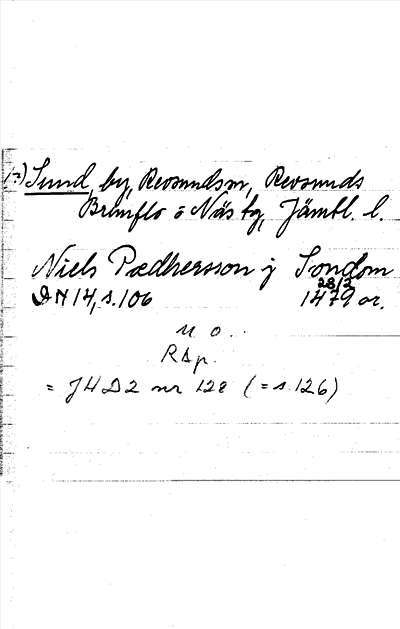 (?) Sund, by, Revsundsn, Revsunds
Brunflo o Näs tg, Jämtl. l.
Niels Pædhersson j Sondom
28/2
DN 14, s. 106 1479 or.
n o.
RAp.
= JHD2 nr 128 (= s. 126)